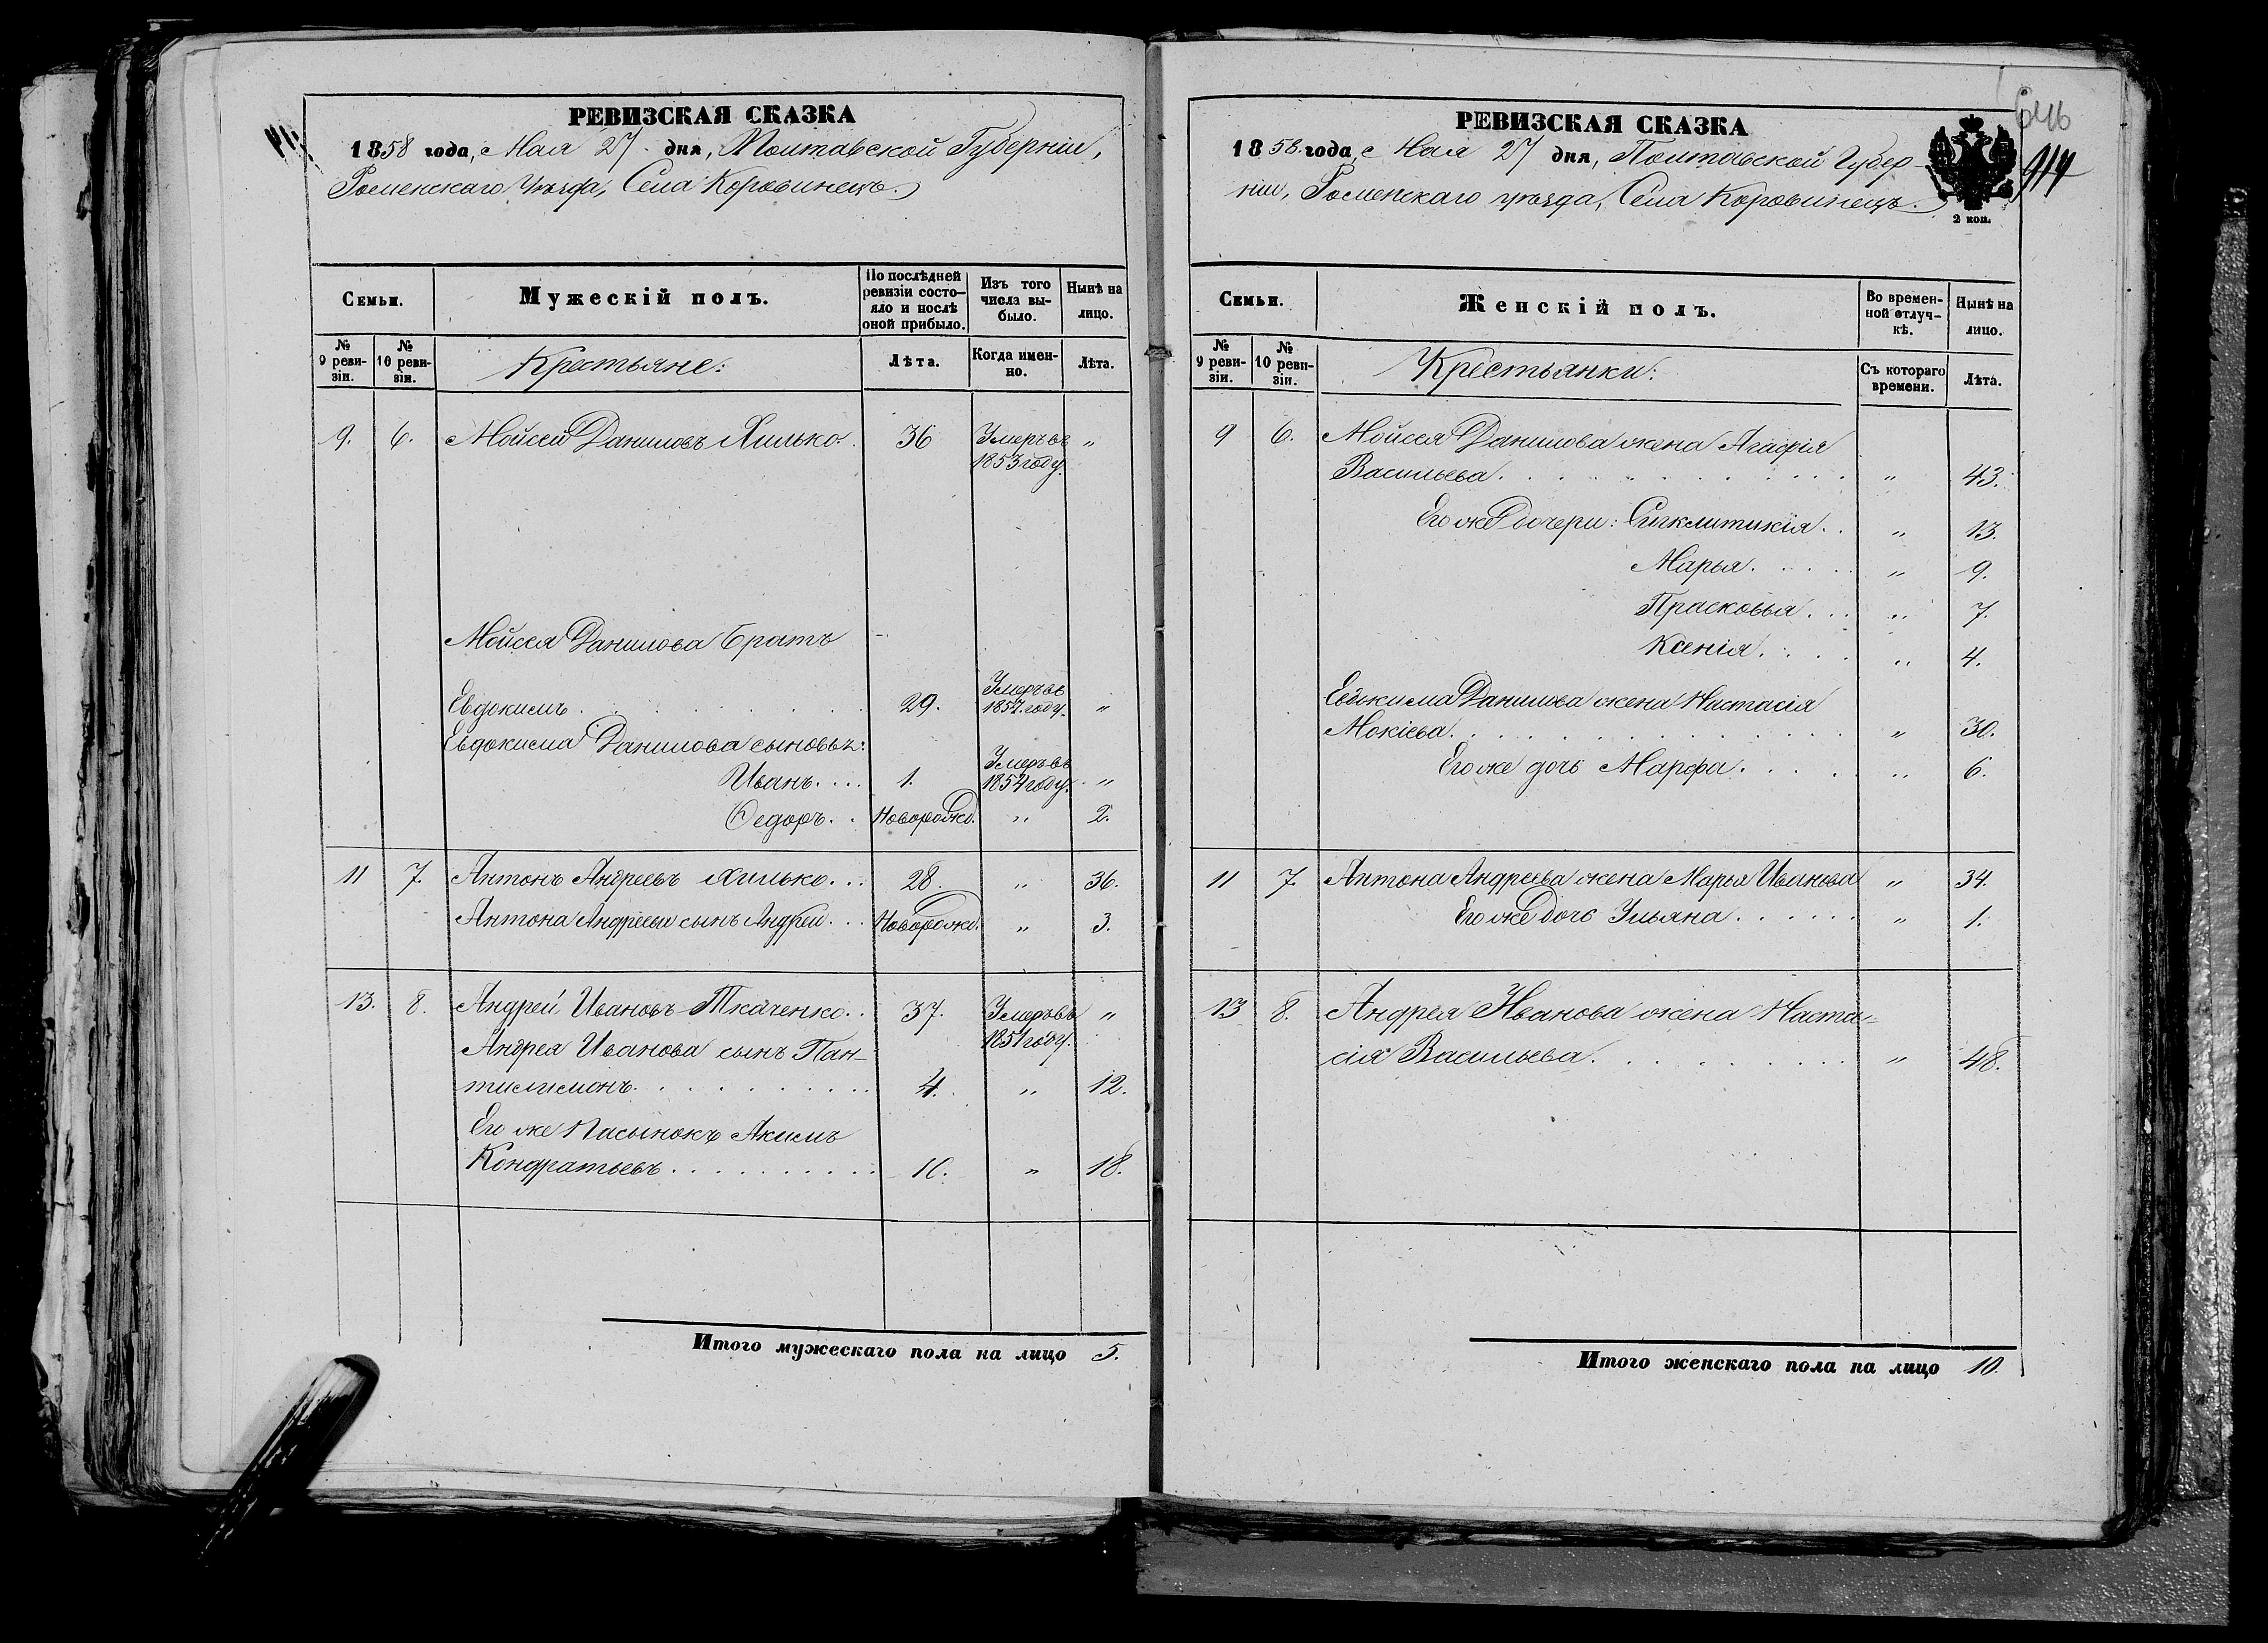 РЕВИЗСКАЯ СКАЗКА
1858 года, Мая 27 дня, Полтавской Губерніи,
Роменскаго Уѣзда, Села Коровинецъ.
Семьи.
Мужескій полъ.
По послѣдней ревизіи состояло и послѣ оной прибыло.
Изъ того числа выбыло.
Нынѣ на лицо.
№ 9 ревизіи.
№ 10 ревизіи.
Крестьяне:
Лѣта.
Когда именно.
Лѣта.
9. 6. Мойсей Даниловъ Хилько. 36 Умеръ въ "
1853 году.
Мойсея Данилова братъ
Евдокимъ . . . 29. Умеръ въ 1857 году. "
Евдокима Данилова сыновья:
Иванъ. . . . 1. Умеръ въ 1857 году. "
Ѳедоръ. . Новорожд. " 2.
11 7. Антонъ Андреевъ Хилько. . . 28. " 36.
Антона Андреева сынъ Андрей. . . Новорожд. " 3.
13. 8. Андрей Ивановъ Ткаченко. . 37. Умеръ въ "
Андрея Иванова сынъ Пан- 1851 году.
тилимонъ. . . . 4. " 12.
Его же пасынокъ Акимъ
Кондратьевъ . . . . 10. " 18.
Итого мужескаго пола на лицо 5.
646
РЕВИЗСКАЯ СКАЗКА
1858. года, Мая 27 дня, Полтавской Губер-
ніи, Роменскаго уѣзда, Села Коровинецъ.
2 коп.
Семьи.
Женскій полъ.
Во временной отлучкѣ.
Нынѣ на лицо.
№ 9 ревизіи.
№ 10 ревизіи.
Крестьянки:
Съ котораго времени.
Лѣта.
9 6. Мойсея Данилова жена Агафія
Васильева. . . . " 43.
Его же дочери: Сигклитикія. . " 13.
Марья. . . . " 9.
Прасковья. . . " 7.
Ксенія. . . . " 4.
Евдокима Данилова жена Настасія
Мокіева. . . . " 30.
Его же дочь Марфа. . . . " 6.
11 7. Антона Андреева жена Марья Иванова " 34.
Его же дочь Ульяна. . . . " 1.
13 8. Андрея Иванова жена Наста-
сія Васильева. . . . " 48.
Итого женскаго пола на лицо 10.